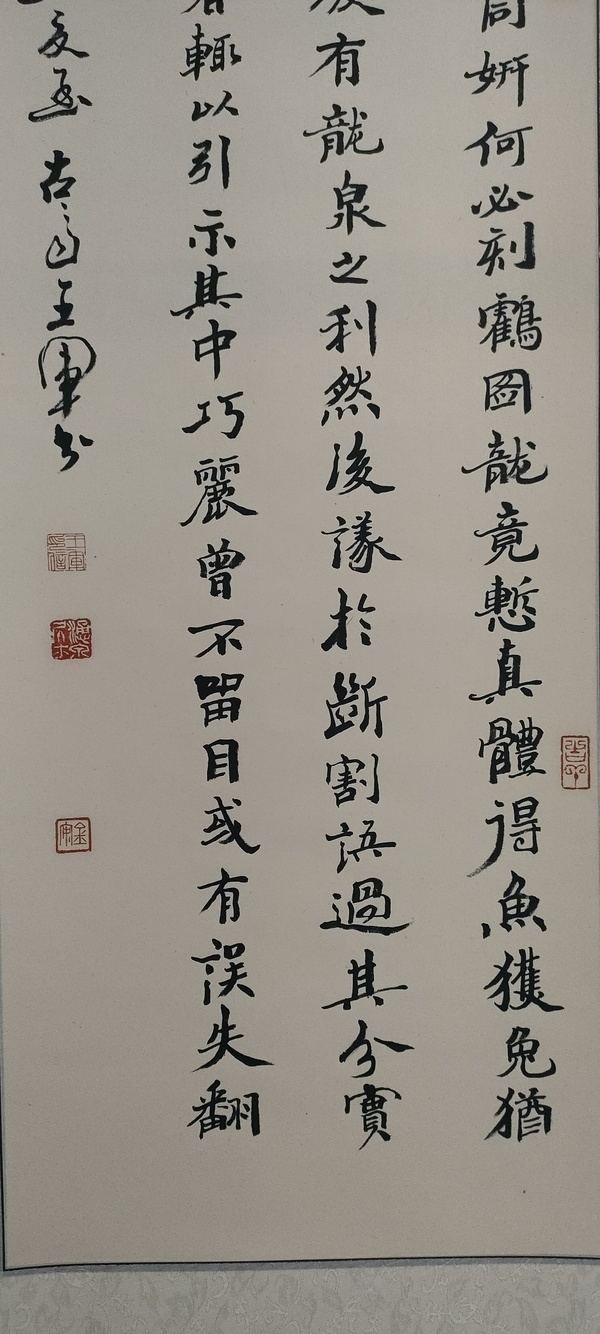 同妍何必刻鶴圖龍竟慙真體得魚獲兔猶
有龍泉之利然後議於斷割語過其分實
者輒以引示其中巧麗曾不留目或有誤失翻
王軍书
王軍印信